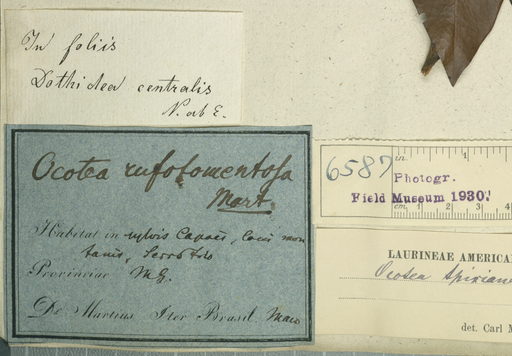 In foliis
Dothidea centralis
N. ab E.
Ocotea rufotomentosa
Mart.
Habitat in sylvis Capões, locis mon
tanis, Serro frio
Provinciae M.G.
De Martius Iter Brasil. Maio
6587
in.
1
Photogr.
Field Museum 1930.
cm. 1 2 3 4
LAURINEAE AMERICA
Ocotea spixiana
det. Carl M